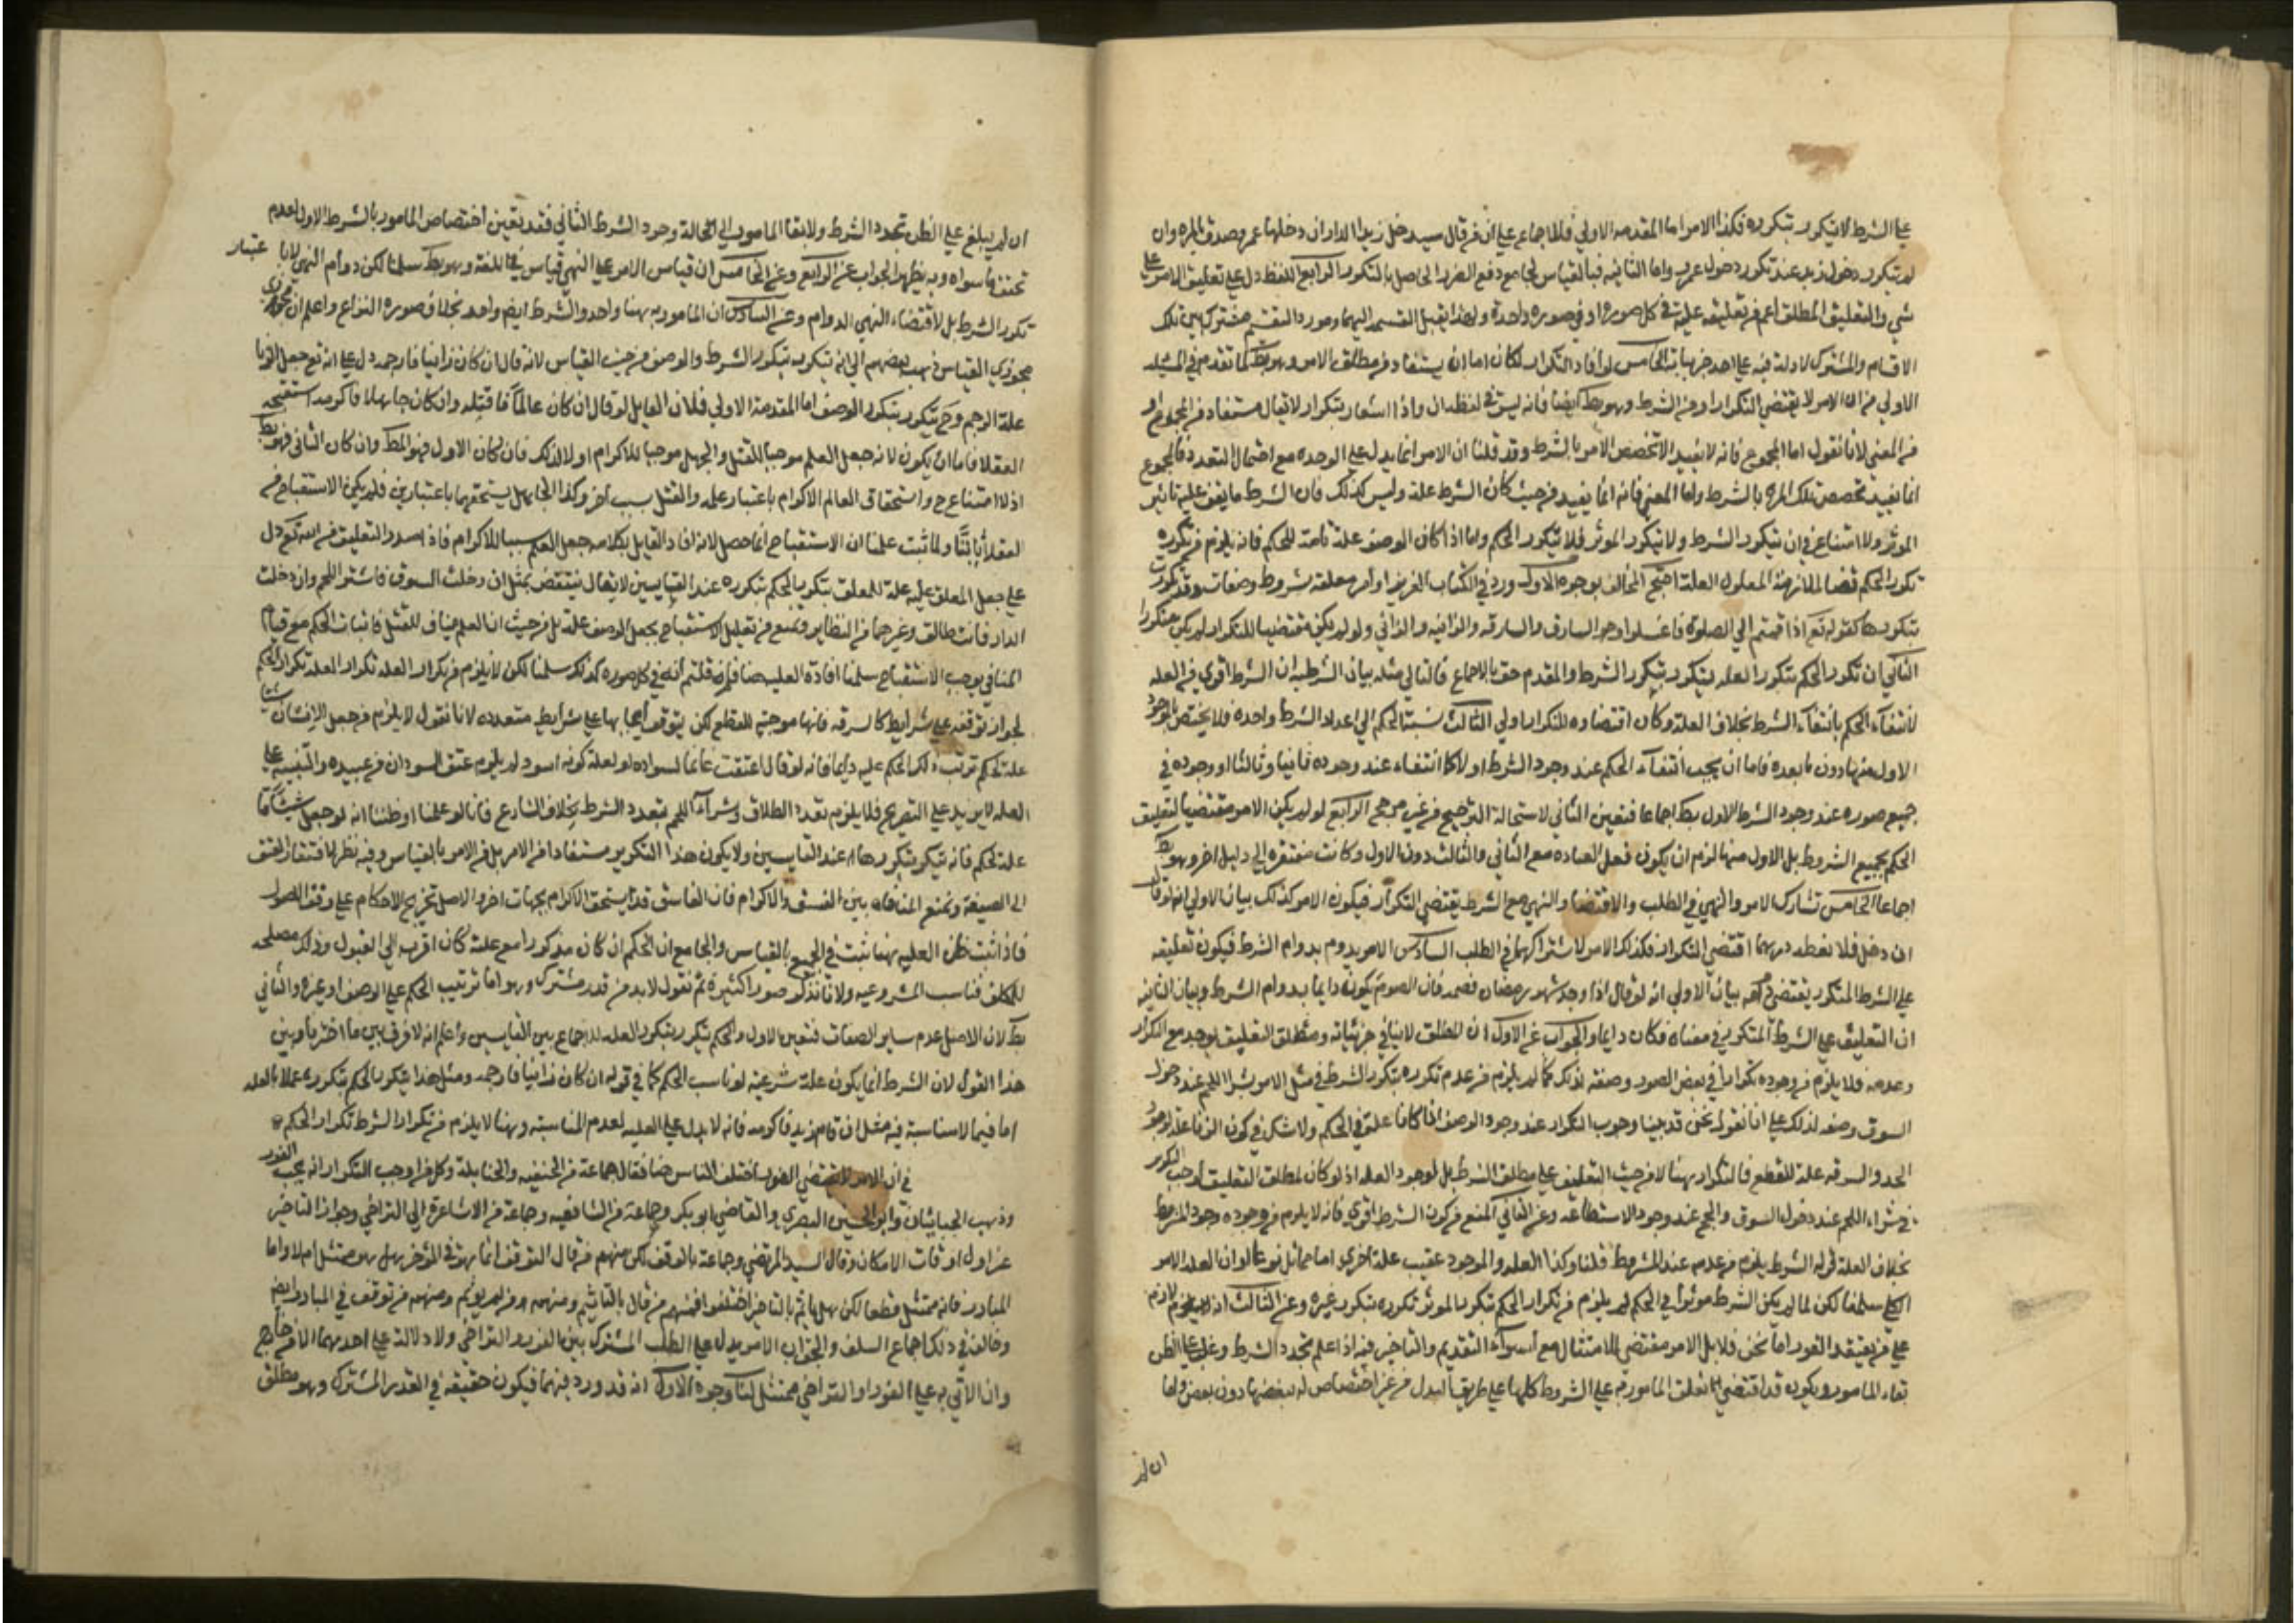 على الشرط لا يتكرر بتكرره فكذا الامر اما المقدمه الاولي فللاجماع علي ان من قال سيدخل زيد الدار ان دخلها عمرو صدق بالمره وان
لم يتكرر دخول زيد عند تكرر دخول عمرو واما الثانيه فبالقياس لجامع دفع الضرر الحاصل بالتكرر الرابع اللفظ دل علي تعليق الامر علي
شي والتعليق المطلق اعم من تعليقه عليه في كل صوره او في صوره واحدة ولهذا يقبل القسمه اليهما ومورد التقسيم مشترك بين تلك
الاقسام والمشترك لا دلة فيه علي احد جزئياته الخامس لو أفاد التكرار لكان اما ان يستفاد من مطلق الامر وهو بط كما تقدم في المسئلة
الاولي من ان الامر لا يقتضي التكرار او من الشرط وهو بط ايضا فانه ليس في لفظه ان واذا اشعار بتكرار لا يقال مستفاد من المجموع او
من المعني لانا نقول اما المجموع فانه لا يفيد الا تخصص الامر بالشرط وقد قلنا ان الامر انما يدل علي الوحده مع احتمال التعدد فالمجموع
انما يفيد تخصص تلك المره بالشرط واما المعني فانه انما يفيد من حيث كان الشرط علة وليس كذلك فان الشرط ما يقف عليه تاثير
الموثر ولا امتناع في ان يتكرر الشرط ولا يتكرر الموثر فلا يتكرر الحكم واما اذا كان الوصف علة تامة للحكم فانه يلزم من تكرره
تكرر الحكم قضا لملازمة المعلول العلة احتج المخالف بوجوه الاول ورد في الكتاب العزيز اوامر معلقه بشروط وصفات وقد تكررت
بتكررها كقوله تع اذا قمتم الي الصلوة فاغسلوا وجو السارق والسارقه والزانيه والزاني ولو لم يكن مقتضيا للتكرار لم يكن متكررا
الثاني ان تكرر الحكم بتكرر العله يتكرر بتكرر الشرط والمقدم حق بالاجماع فالتالي مثله بيان الشرطيه ان الشرط اقوي من العله
لانتفاء الحكم بانتفاء الشرط بخلاف العلة وكان اقتضاوه للتكرار اولي الثالث نسبة الحكم الي اعداد الشرط واحده فلا يختص بالموجود
الاول منها دون ما بعده فاما ان يجب انتفاء الحكم عند وجود الشرط اولا كانتفاء عند وجوده ثانيا وثالثا او وجوده في
جميع صوره عند وجود الشرط الاول بط اجماعا فتعين الثاني لاستحالة الترجيح من غير مرجح الرابع لو لم يكن الامر مقتضيا لتعليق
الحكم بجميع الشروط بل الاول منها لزم ان يكون فعل العباده مع الثاني والثالث دون الاول وكانت مفتقره الي دليل اخر وهو بط
اجماعا الخامس تشارك الامر والنهي في الطلب والاقتضا والنهي مع الشرط يقتضي التكرار فيكون الامر كذلك بيان الاولي انه لو قال
ان دخل فلا تعطه درهما اقتضي التكرار فكذلك الامر لاشتراكهما في الطلب السادس الامر يدوم بدوام الشرط فيكون تعليقه
علي الشرط المتكرر يقتضي دوامه بيان الاولي انه لو قال اذا وجد شهر رمضان فصمه فان الصوم يكون دايما بدوام الشرط وبيان الثانيه
ان التعليق علي الشرط المتكرر في معناه فكان دايما والجواب عن الاول ان المطلق لا ينافي جزئياته ومطلق التعليق يوجد مع التكرار
وعدمه فلا يلزم من وجوده تكرارا في بعض الصور وصفه لذلك كما لم يلزم من عدم تكرره بتكرر الشرط في مثل الامر بشرا اللحم عند دخول
السوق وصفه لذلك علي انا نقول نحن قد بينا وجوب التكرار عند وجود الوصف اذا كانا علة في الحكم ولا شك في كون الزنا علة لوجوب
الحد والسرقه علة للقطع فالتكرار هنا لا من حيث التعليق علي مطلق الشرط بل لوجود العله اذ لو كان لمطلق التعليق لوجب التكرر
في شراء اللحم عند دخول السوق والحج عند وجود الاستطاعه وعن الثاني المنع من كون الشرط اقوي فانه لا يلزم من وجوده وجود المشروط
بخلاف العلة قوله الشرط يلزم من عدمه عدم المشروط قلنا وكذا العله والموجود عقيب علة اخري اما مماثل نوعا لو ان العله الامر
الكلي سلمنا لكن لما لم يكن الشرط موثرا في الحكم لم يلزم من تكرار الحكم بتكرر الموثر تكرره بتكرر غيره وعن الثالث اذ لا يلزم لازم
علي من يعتقد الفور اما نحن فلا بل الامر مقتضي للامتثال مع استواء التقديم والتاخير فيه اذا علم تجدد الشرط وغلب علي الظن
بقاء المامور ويكون قد اقتضي تعلق المامور به علي الشروط كلها علي طريق البدل من غير اختصاص له ببعضها دون بعض واما
ان لم
ان لم يغلب علي الظن تجدد الشرط ولا بقا المامور الي حالة وجود الشرط الثاني فقد يتعين اختصاص المامور بالشرط الاول لعدم
تحقق ما سواه وبه يظهر الجواب عن الرابع وعن الخامس ان قياس الامر علي النهي قياس في اللغة وهو بط سلمنا لكن دوام النهي لا باعتبار
تكرر الشرط بل لاقتضاء النهي الدوام وعن السادس ان المامور به هنا واحد والشرط ايضا واحد بخلاف صورة النزاع واعلم ان
مجوزي القياس ذهب بعضهم الي انه يتكرر بتكرر الشرط والوصف من حيث القياس لانه قال ان كان زانيا فارجمه دل علي انه تع جعل الزنا
علة الرجم وح يتكرر بتكرر الوصف اما المقدمة الاولي فلان القايل لو قال ان كان عالما فاقتله وان كان جاهلا فاكرمه استقبحه
العقلا فاما ان يكون لانه جعل العلم موجبا للقتل والجهل موجبا للاكرام او لا لذلك فان كان الاول فهو المط وان كان الثاني فهو بط
اذ لا امتناع ح واستحقاق العالم الاكرام باعتبار علمه والقتل بسبب اخر وكذا الجاهل يستحقهما باعتبارين فلم يكن الاستقباح من
العقلا ثابتا ولما ثبت علمنا ان الاستقباح انما حصل لانه افاد القايل بكلامه جعل العلم سببا للاكرام فاذ اصدر التعليق من الله تع دل
علي جعل المعلق عليه علة للمعلق يتكرر الحكم بتكرره عند القيايسين لا يقال ينتقض بمثل ان دخلت السوق فاشتر اللحم وان دخلت
الدار فانت طالق وغيرهما من النظاير ونمنع من تعليل الاستقباح بجعل الوصف علة بل من حيث ان العلم مناف للقتل فاثبات الحكم مع قيام
المنافي يوجب الاستقباح سلمنا افادة العليه هنا فلم قلتم انه في كل صوره كذلك سلمنا لكن لا يلزم من تكرار العله تكرار المعله تكرار الحكم
لجواز توقفه علي شرايط كالسرقه فانها موجبة للقطع لكن يتوقف ايجابها علي شرايط متعدده لانا نقول لا يلزم من جعل الانسان شيئا
علة لحكم ترتب ذلك الحكم عليه دايما فانه لو قال اعتقت غانما لسواده او لعلة كونه اسود لم يلزم عتق السودان من عبيده والتنبيه علي
العله لا يزيد علي التصريح فلا يلزم تعدد الطلاق وشراء اللحم بتعدد الشرط بخلاف الشارع فانا لو علمنا او ظننا انه لو جعل شيئا ما
علة لحكم فانه يتكرر بتكررها عند القايسين ولا يكون هذا التكرير مستفادا من الامر بل من الامر بالقياس وفيه نظر لافتقار العتق
الي الصيغة ونمنع المنافاه بين الفسق والاكرام فان الفاسق قد يستحق الاكرام بجهات اخر والاصل تخريج الاحكام علي وفق الاصول
فاذا ثبت ظن العليه هنا ثبت في الجميع بالقياس والجامع ان الحكم ان كان مذكورا مع علته كان اقرب الي القبول وذلك مصلحه
للمكلف فناسب المشروعيه ولانا نذكر صورا كثيرة ثم نقول لا بد من قدر مشترك وهو اما ترتيب الحكم علي الوصف او غيره والثاني
بط لان الاصل عدم ساير الصفات فتعين الاول والحكم يتكرر بتكرر العله للاجماع بين القايسين واعلم انه لا فرق بين ما اخترناه وبين
هذا القول لان الشرط انما يكون علة شرعية لو ناسب الحكم كما في قوله ان كان زانيا فارجمه ومثل هذا يتكرر الحكم بتكرره عملا بالعله
اما فيما لا مناسبة فيه مثل ان قام زيد فاكرمه فانه لا يدل علي العليه لعدم المناسبة وهنا لا يلزم من تكرار الشرط تكرار الحكم
في ان الامر لا يقتضي الفور اختلف الناس هنا فقال جماعة من الحنفيه والحنابلة وكل من اوجب التكرار انه يجب الفور
وذهب الجبائيان وابو الحسين البصري والقاضي ابو بكر وجماعة من الشافعيه وجماعة من الاشاعرة الي التراخي وجواز التاخير
عن اول اوقات الامكان وقال السيد المرتضي وجماعة بالوقف لكن منهم من قال التوقف انما هو في المؤخر هل هو ممتثل ام لا واما
المبادر فانه ممتثل قطعا لكن هل ياثم بالتاخير اختلفوا فمنهم من قال بالتاثيم ومنهم من لم يؤثم ومنهم من توقف في المبادر ايضا
وخالف في ذلك اجماع السلف والجواب الامر يدل علي الطلب المشترك بين الفور والتراخي ولا دلالة علي احدهما الا من خارج
وان الاتي به علي الفور او التراخي ممتثل لنا وجوه الاول انه قد ورد فيهما فيكون حقيقه في القدر المشترك وهو مطلق